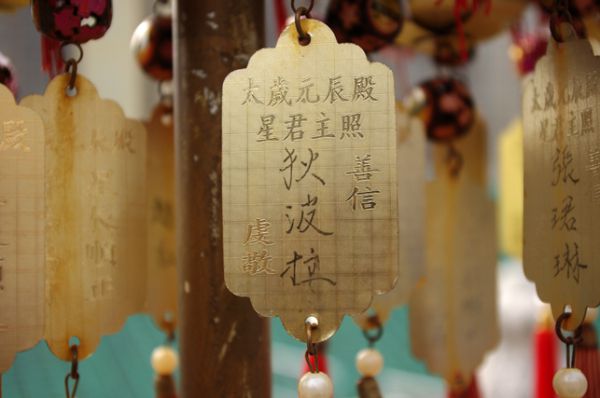 太歲元辰殿
星君主照
善信
狄波拉
虔敬
太歲元辰殿
星君主照
張珺琳
殿